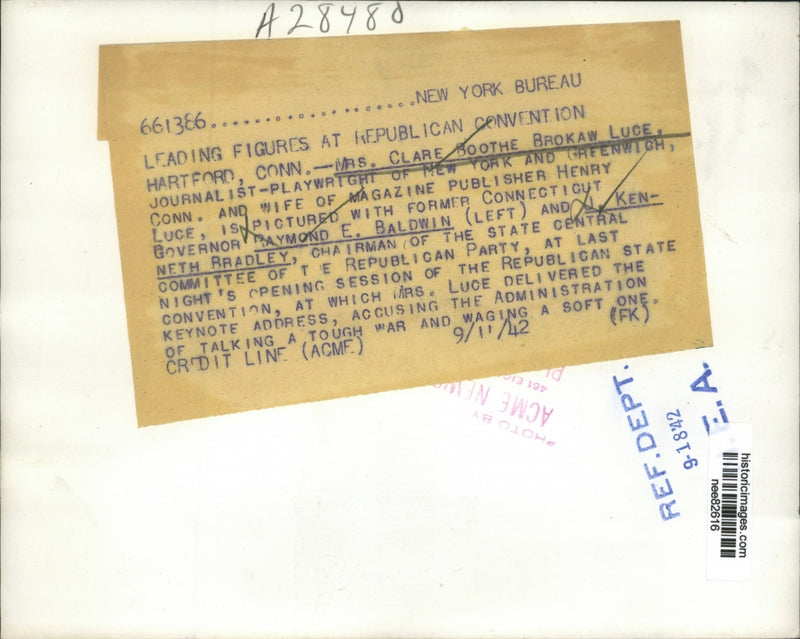 A28480
661386...................NEW YORK BUREAU
LEADING FIGURES AT REPUBLICAN CONVENTION
HARTFORD, CONN.—MRS. CLARE BOOTHE BROKAW LUCE,
JOURNALIST-PLAYWRIGHT OF NEW YORK AND GREENWICH,
CONN. AND WIFE OF MAGAZINE PUBLISHER HENRY
LUCE, IS PICTURED WITH FORMER CONNECTICUT
GOVERNOR RAYMOND E. BALDWIN (LEFT) AND J. KEN-
NETH BRADLEY, CHAIRMAN OF THE STATE CENTRAL
COMMITTEE OF THE REPUBLICAN PARTY, AT LAST
NIGHT'S OPENING SESSION OF THE REPUBLICAN STATE
CONVENTION, AT WHICH MRS. LUCE DELIVERED THE
KEYNOTE ADDRESS, ACCUSING THE ADMINISTRATION
OF TALKING A TOUGH WAR AND WAGING A SOFT ONE.
CREDIT LINE (ACME) 9/11/42 (FK)
PHOTO BY
ACME NEWS
461 EIG
REF. DEPT.
9-18'42
E.A.
historicimages.com
nee82616